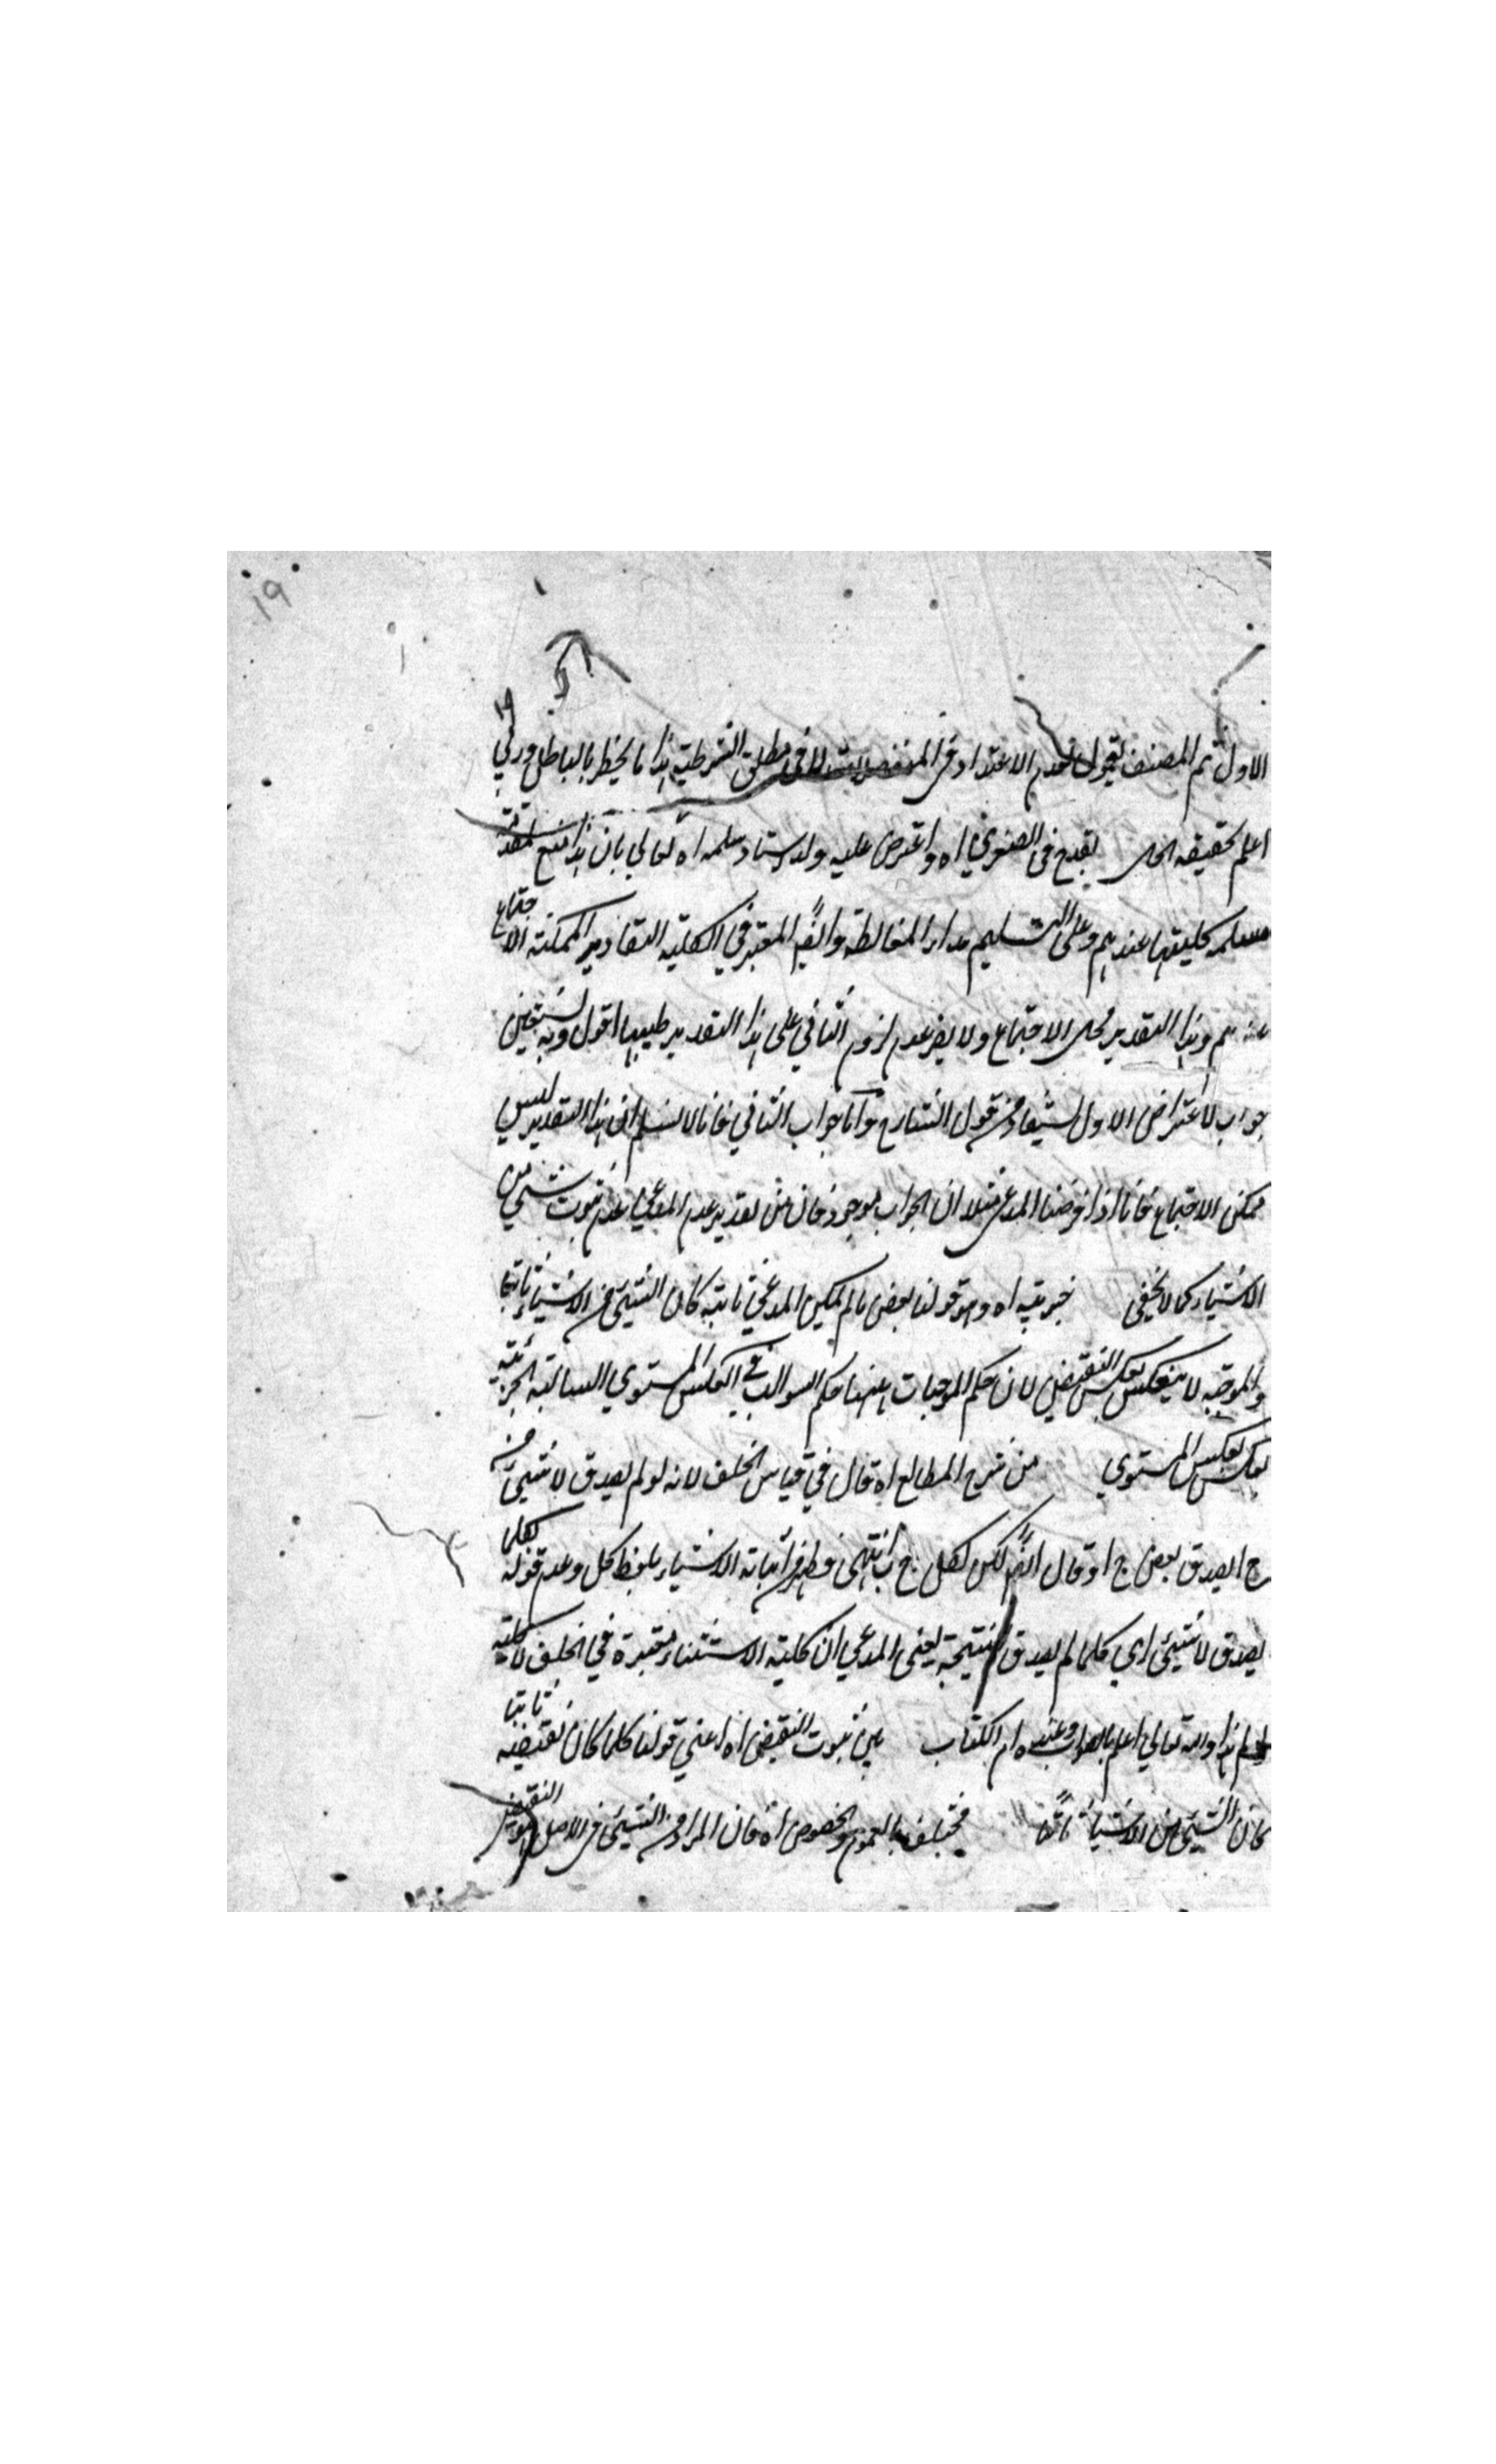 ١٩
١٩
الاول ثم المصنف يقول بعدم الاعتداد في المنفصلات لا في مطلق الشرطية هذا ما يخطر بالبال وربي
اعلم بحقيقة الحال يقدح في الصغرى اه واعترض عليه ولد الاستاد سلمه اه تعالى بان هذا منع لمقدمة
مسلمه كليتها عندهم وعلى التسليم مدار المغالطة وايضا المعتبر في الكلية التقادير الممكنة الاجتماع
عندهم وهذا التقدير محال الاجتماع ولا يضر عدم لزوم الثاني على هذا التقدير اقول وبه نستعين
جواب الاعتراض الاول يستفاد من قول الشارح واما جواب الثاني فانا لا نسلم ان هذا التقدير ليس
ممكن الاجتماع فانا اذا فرضنا المدعى مثلا ان موجود فان من تقدير عدم المدعى عدم ثبوت شيء من
الاشياء كما لا يخفى خبريته اه وهو قولنا بعض ما لم يكن المدعى ثابتة كان الشيء من الاشياء ثابتا
والموجبة لا ينعكس بعكس النقيض لان حكم الموجبات ههنا حكم السوالب في العكس المستوي السالبة الجزئية
بعكس المستوي من شرح المطالع اه قال في قياس الخلف لانه لو لم يصدق لا شيء من
ج ا لصدق بعض ج ا وقال ايضا لكن كل ج ب انتهى فطهر اثباته الاشياء بلفظ كل وعدم قوله كلما
يصدق لا شيء اي كلما لم يصدق النتيجة يعنى المدعى ان كلية الاستثناء معتبرة في الخلف لا كلية
هذا والله تعالى اعلم بالصواب وعنده ام الكتاب بين ثبوت النقيض اه اعني قولنا كلما كان نقيضه ثابتا
كان الشيء من الاشياء ثابتا مختلف بالعموم والخصوص اه فان المراد من الشيء في الاصل هو النقيض